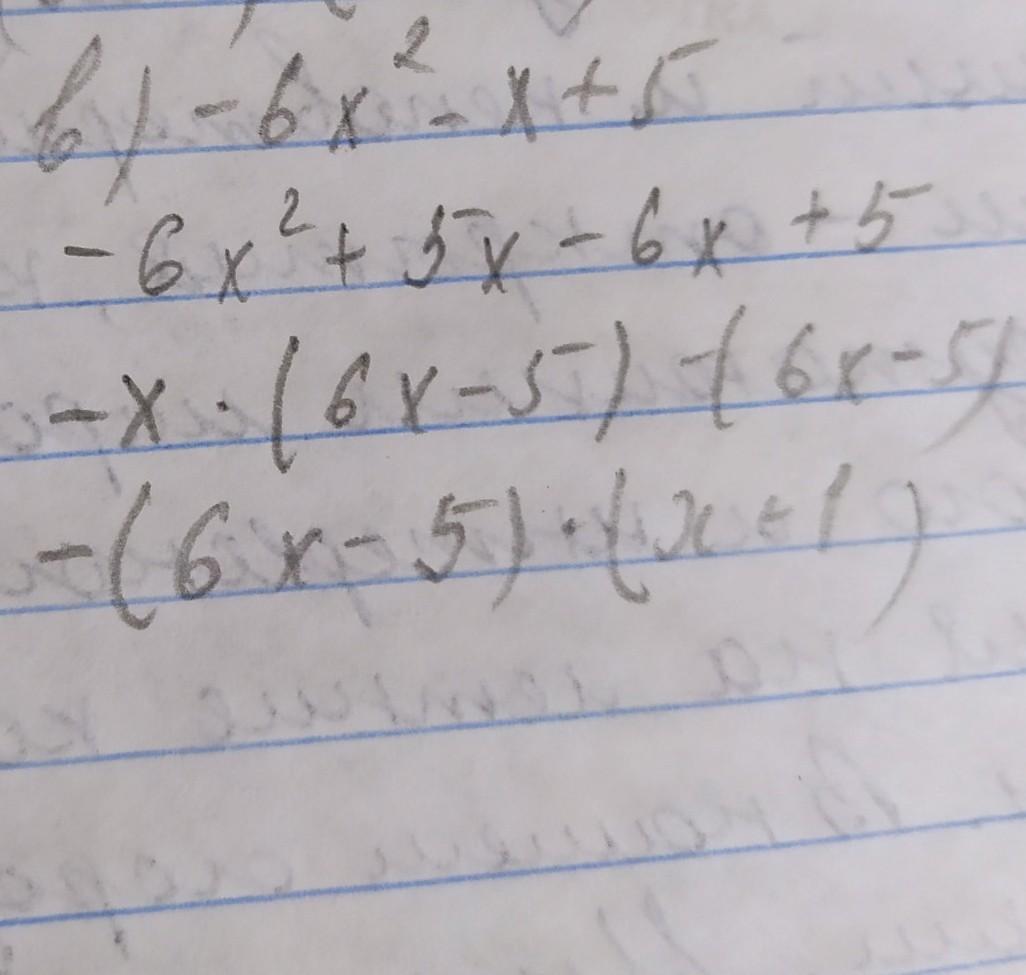 в) -6x² - x + 5
-6x² + 5x - 6x + 5
-x · (6x - 5) - (6x - 5)
-(6x - 5) · (x + 1)